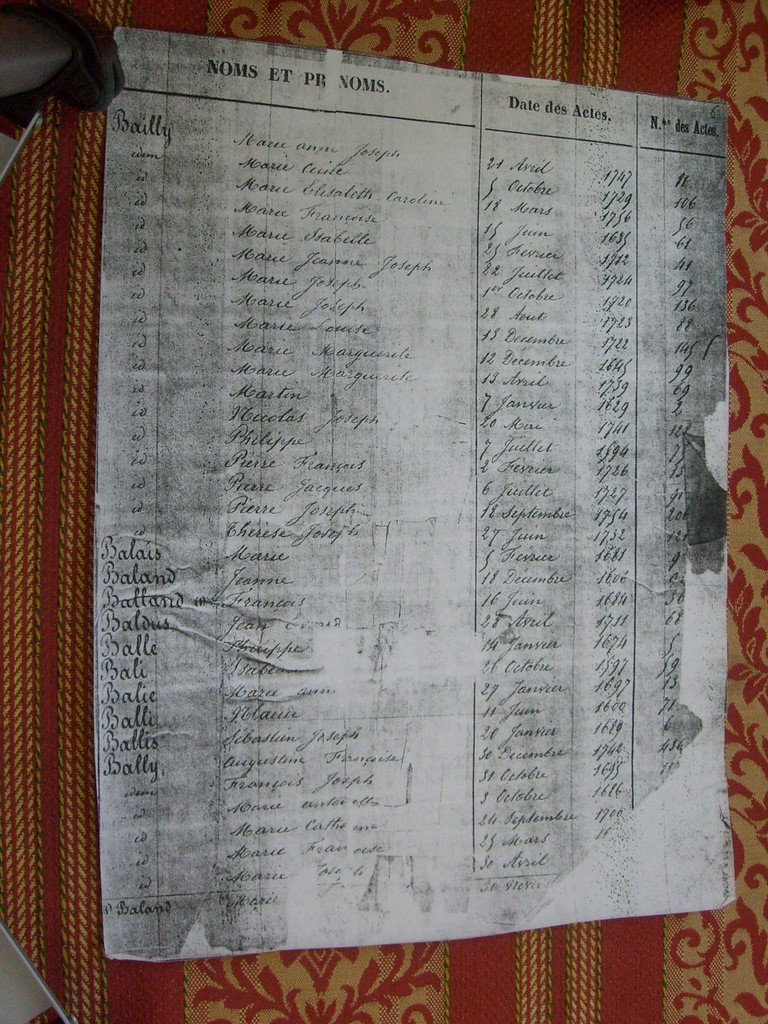 NOMS ET PR NOMS. Date des Actes, N.os des Actes.
Bailly Marie anne Joseph 21 Avril 1747
idem Marie Cecile 5 Octobre 1729 106
id Marie Elisabeth Caroline 18 Mars 1756 56
id Marie Françoise 15 Juin 1635 61
id Marie Isabelle 25 Fevrier 1712 41
id Marie Jeanne Joseph 22 Juillet 1724 97
id Marie Joseph 1er Octobre 1720 136
id Marie Joseph 28 Aout 1723 88
id Marie Louise 13 Decembre 1722 145
id Marie Marguerite 12 Decembre 1645 99
id Marie Marguerite 13 Avril 1739 69
id Martin 7 Janvier 1629 2
id Nicolas Joseph 20 Mai 1741
id Philippe 7 Juillet 1594
id Pierre François 2 Fevrier 1726 15
id Pierre Jacques 6 Juillet 1727
id Pierre Joseph 18 Septembre 1754 206
id Therèse Joseph 27 Juin 1732
Balais Marie 5 Fevrier 1681 9
Baland Jeanne 18 Decembre 1606
Balland (1) François 16 Juin 1684 36
Baldus Jean 28 Avril 1711 68
Balle Philippe 14 Janvier 1674 5
Bali 26 Octobre 1597 59
Balie Marie anne 27 Janvier 1697 13
Balli Claude 11 Juin 1600 71
Ballis Sebastien Joseph 20 Janvier 1689 6
Bally Augustine Françoise 30 Decembre 1742 436
idem François Joseph 31 Octobre 1695
id Marie 3 Octobre 1686
id Marie Catherine 24 Septembre 1700
id Marie Françoise 25 Mars
id Marie Joseph 30 Avril
Marie 30
(1) Baland